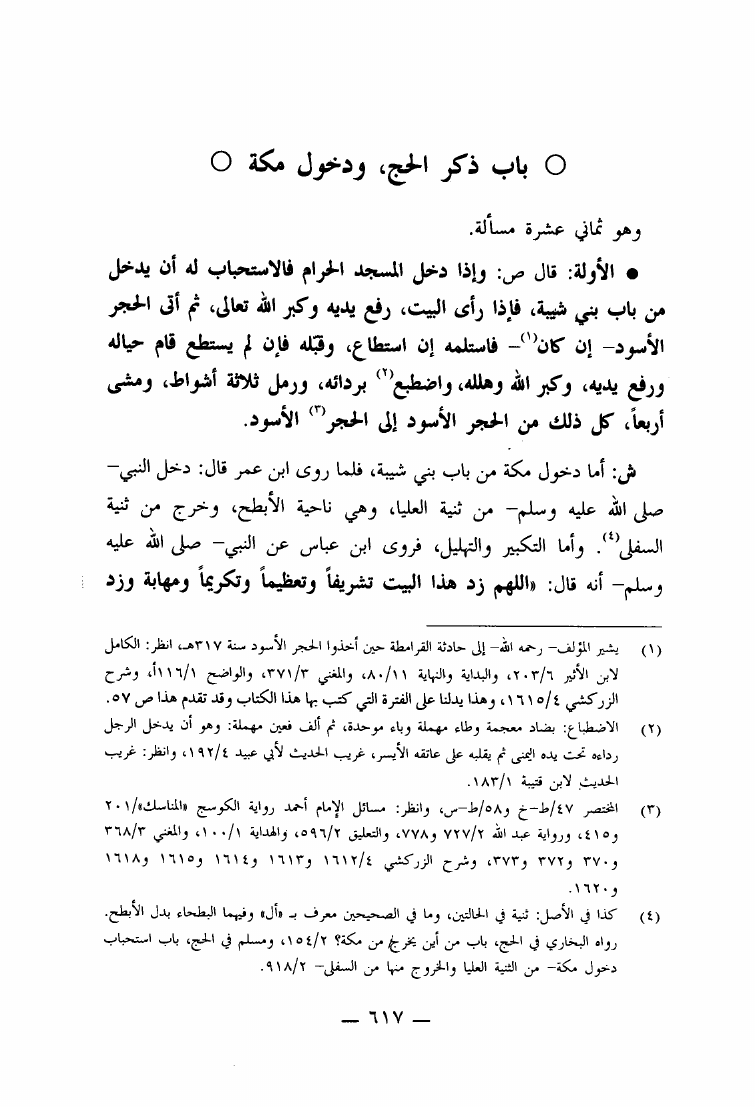 ○ باب ذكر الحج، ودخول مكة ○
وهو ثماني عشرة مسألة.
● الأولة: قال ص: وإذا دخل المسجد الحرام فالاستحباب له أن يدخل
من باب بني شيبة، فإذا رأى البيت، رفع يديه وكبر الله تعالى، ثم أتى الحجر
الأسود– إن كان(١)– فاستلمه إن استطاع، وقبّله فإن لم يستطع قام حياله
ورفع يديه، وكبر الله وهلله، واضطبع(٢) بردائه، ورمل ثلاثة أشواط، ومشى
أربعاً، كل ذلك من الحجر الأسود إلى الحجر(٣) الأسود.
ش: أما دخول مكة من باب بني شيبة، فلما روى ابن عمر قال: دخل النبي–
صلى الله عليه وسلم– من ثنية العليا، وهي ناحية الأبطح، وخرج من ثنية
السفلى(٤). وأما التكبير والتهليل، فروى ابن عباس عن النبي– صلى الله عليه
وسلم– أنه قال: «اللهم زد هذا البيت تشريفاً وتعظيماً وتكريماً ومهابة وزد
(١) يشير المؤلف– رحمه الله– إلى حادثة القرامطة حين أخذوا الحجر الأسود سنة ٣١٧هـ، انظر: الكامل
لابن الأثير ٢٠٣/٦، والبداية والنهاية ٨٠/١١، والمغني ٣٧١/٣، والواضح ١١٦/١أ، وشرح
الزركشي ١٦١٥/٤، وهذا يدلنا على الفترة التي كتب بها هذا الكتاب وقد تقدم هذا ص ٥٧.
(٢) الاضطباع: بضاد معجمة وطاء مهملة وباء موحدة، ثم ألف فعين مهملة: وهو أن يدخل الرجل
رداءه تحت يده اليمنى ثم يقلبه على عاتقه الأيسر، غريب الحديث لأبي عبيد ١٩٢/٤، وانظر: غريب
الحديث لابن قتيبة ١٨٣/١.
(٣) المختصر ٤٧/ط–خ و٥٨/ط–س، وانظر: مسائل الإمام أحمد رواية الكوسج «المناسك»/٢٠١
و٤١٥، ورواية عبد الله ٧٢٧/٢ و٧٧٨، والتعليق ٥٩٦/٢، والهداية ١٠٠/١، والمغني ٣٦٨/٣
و٣٧٠ و٣٧٢ و٣٧٣، وشرح الزركشي ١٦١٢/٤ و١٦١٣ و١٦١٤ و١٦١٥ و١٦١٨
و١٦٢٠.
(٤) كذا في الأصل: ثنية في الحالتين، وما في الصحيحين معرف بـ «أل» وفيهما البطحاء بدل الأبطح.
رواه البخاري في الحج، باب من أين يخرج من مكة؟ ١٥٤/٢، ومسلم في الحج، باب استحباب
دخول مكة– من الثنية العليا والخروج منها من السفلى– ٩١٨/٢.
— ٦١٧ —